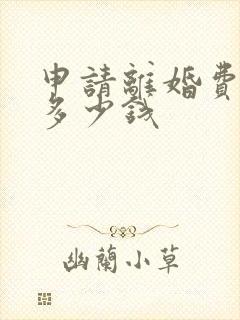 申請離婚費
多少錢
幽蘭小草